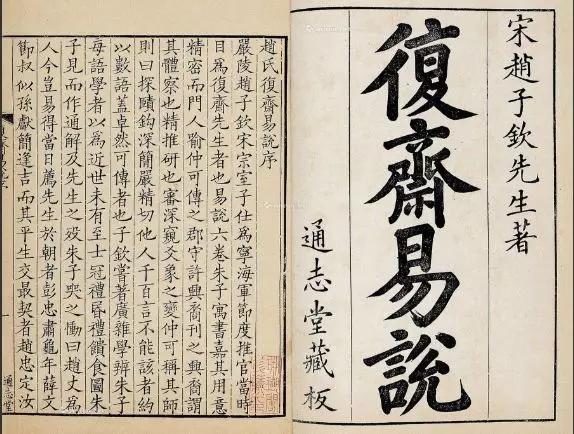 宋趙子欽先生著
復齋易說
通志堂藏板
趙氏復齋易說序
嚴陵趙子欽宋宗室子仕爲寧海軍節度推官當時
目爲復齋先生者也易說六卷朱子寓書嘉其用意
精密而門人喻仲可傳之郡守許興裔刊之興裔謂
其體察也精推硏也審深窺爻象之變仲可稱其師
則曰探賾鈎深簡嚴精切他人千百言不能該者約
以數語蓋卓然可傳者也子欽嘗著廣雜學辨朱子
每語學者以爲近世未有至士冠禮昏禮饋食圖朱
子見而作通解及先生之歿朱子哭之慟曰趙丈爲
人今豈易得當日薦先生於朝者彭忠肅龜年薛文
節叔似孫獻簡逢吉而其平生交最契者趙忠定汝
通志堂